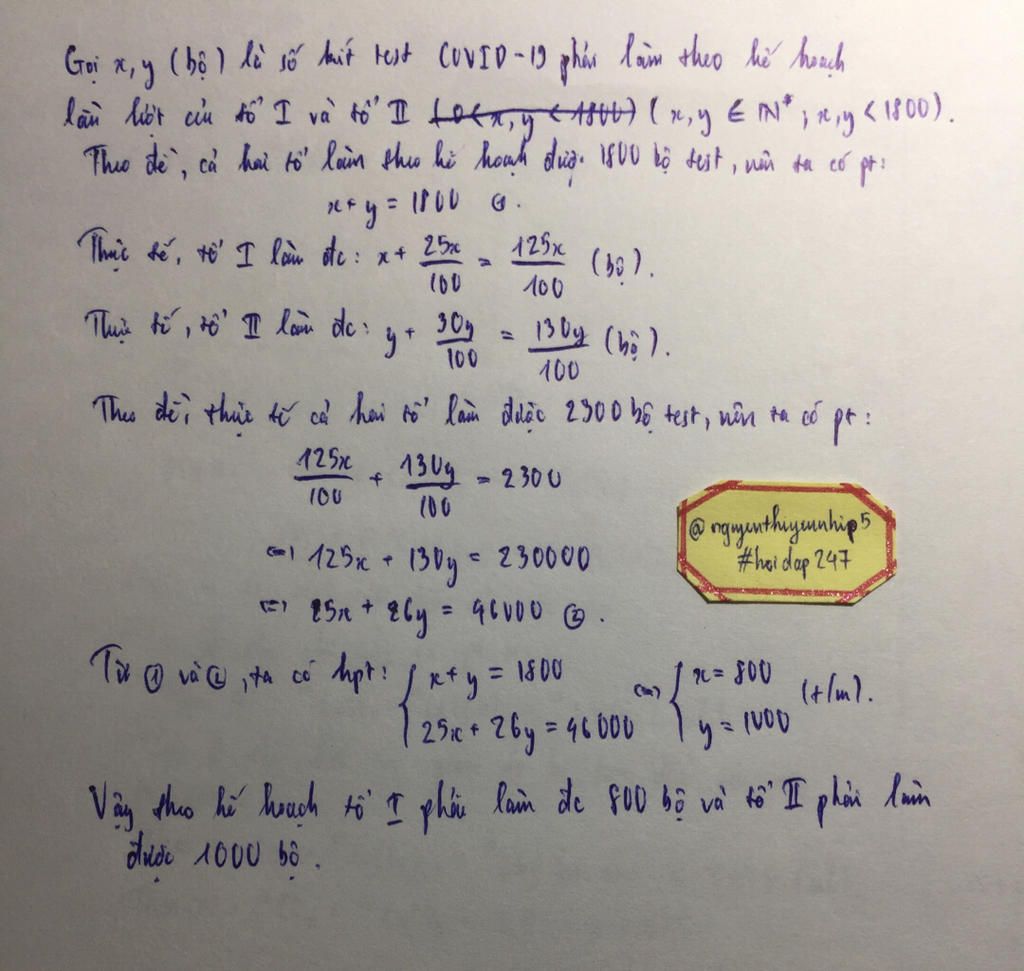 Gọi x, y (bộ) là số kit test COVID-19 phải làm theo kế hoạch
lần lượt của tổ I và tổ II (0 < x, y < 1800) (x, y ∈ N*; x, y < 1800).
Theo đề, cả hai tổ làm theo kế hoạch được 1800 bộ test, nên ta có pt:
x + y = 1800 ①.
Thực tế, tổ I làm đc: x + 25x/100 = 125x/100 (bộ).
Thực tế, tổ II làm đc: y + 30y/100 = 130y/100 (bộ).
Theo đề, thực tế cả hai tổ làm được 2300 bộ test, nên ta có pt:
125x/100 + 130y/100 = 2300
<=> 125x + 130y = 230000
<=> 25x + 26y = 46000 ②.
@nguyenthiyeunhip5
#hoidap247
Từ ① và ②, ta có hpt: { x + y = 1800 ; 25x + 26y = 46000 <=> { x = 800 ; y = 1000 (t/m).
Vậy theo kế hoạch tổ I phải làm đc 800 bộ và tổ II phải làm
được 1000 bộ.